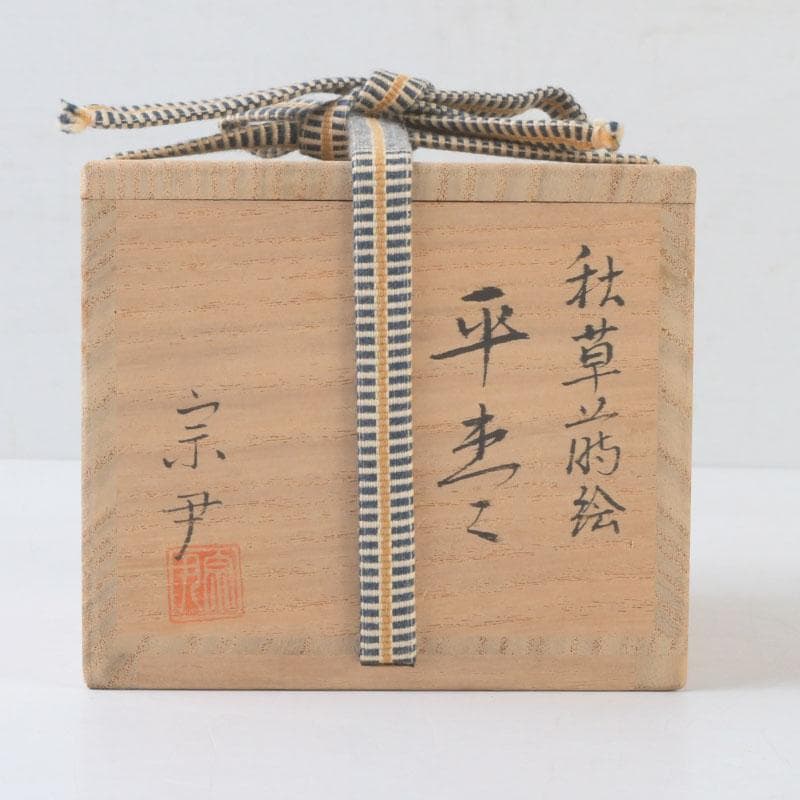 秋草蒔絵
平棗
宗尹
宗尹